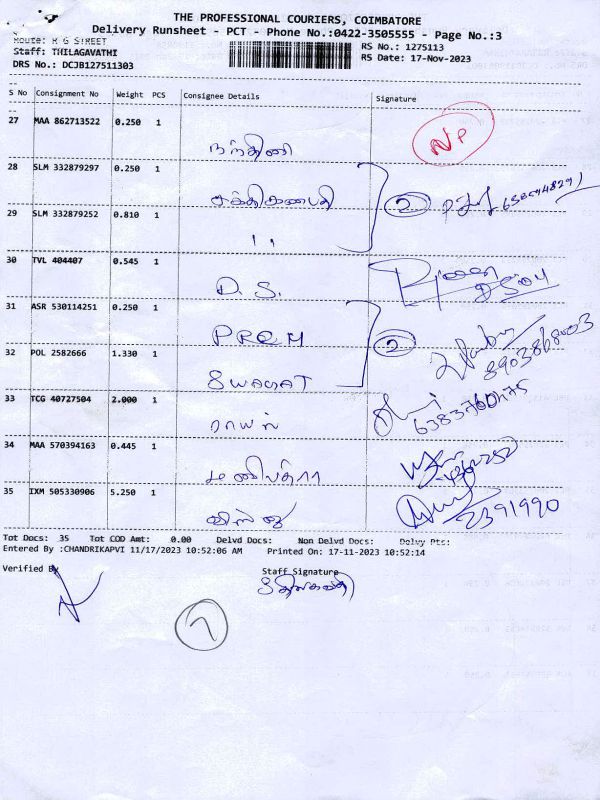 THE PROFESSIONAL COURIERS, COIMBATORE
Delivery Runsheet - PCT - Phone No.:0422-3505555 - Page No.:3
Route: R G STREET
Staff: THILAGAVATHI
DRS No.: DCJB127511303
RS No.: 1275113
RS Date: 17-Nov-2023
S No Consignment No Weight PCS Consignee Details Signature
27 MAA 862713522 0.250 1 நந்தினி NP
28 SLM 332879297 0.250 1 சக்திகணபதி 2
29 SLM 332879252 0.810 1 ,,
30 TVL 404407 0.545 1 D.S.
31 ASR 530114251 0.250 1 PREM 2
8903868003
32 POL 2582666 1.330 1 SWAGAT
33 TCG 40727504 2.000 1 ராயல்
34 MAA 570394163 0.445 1
35 IXM 505330906 5.250 1 2391990
Tot Docs: 35 Tot COD Amt: 0.00 Delvd Docs: Non Delvd Docs: Delvy Pts:
Entered By :CHANDRIKAPVI 11/17/2023 10:52:06 AM Printed On: 17-11-2023 10:52:14
Verified By Staff Signature
7